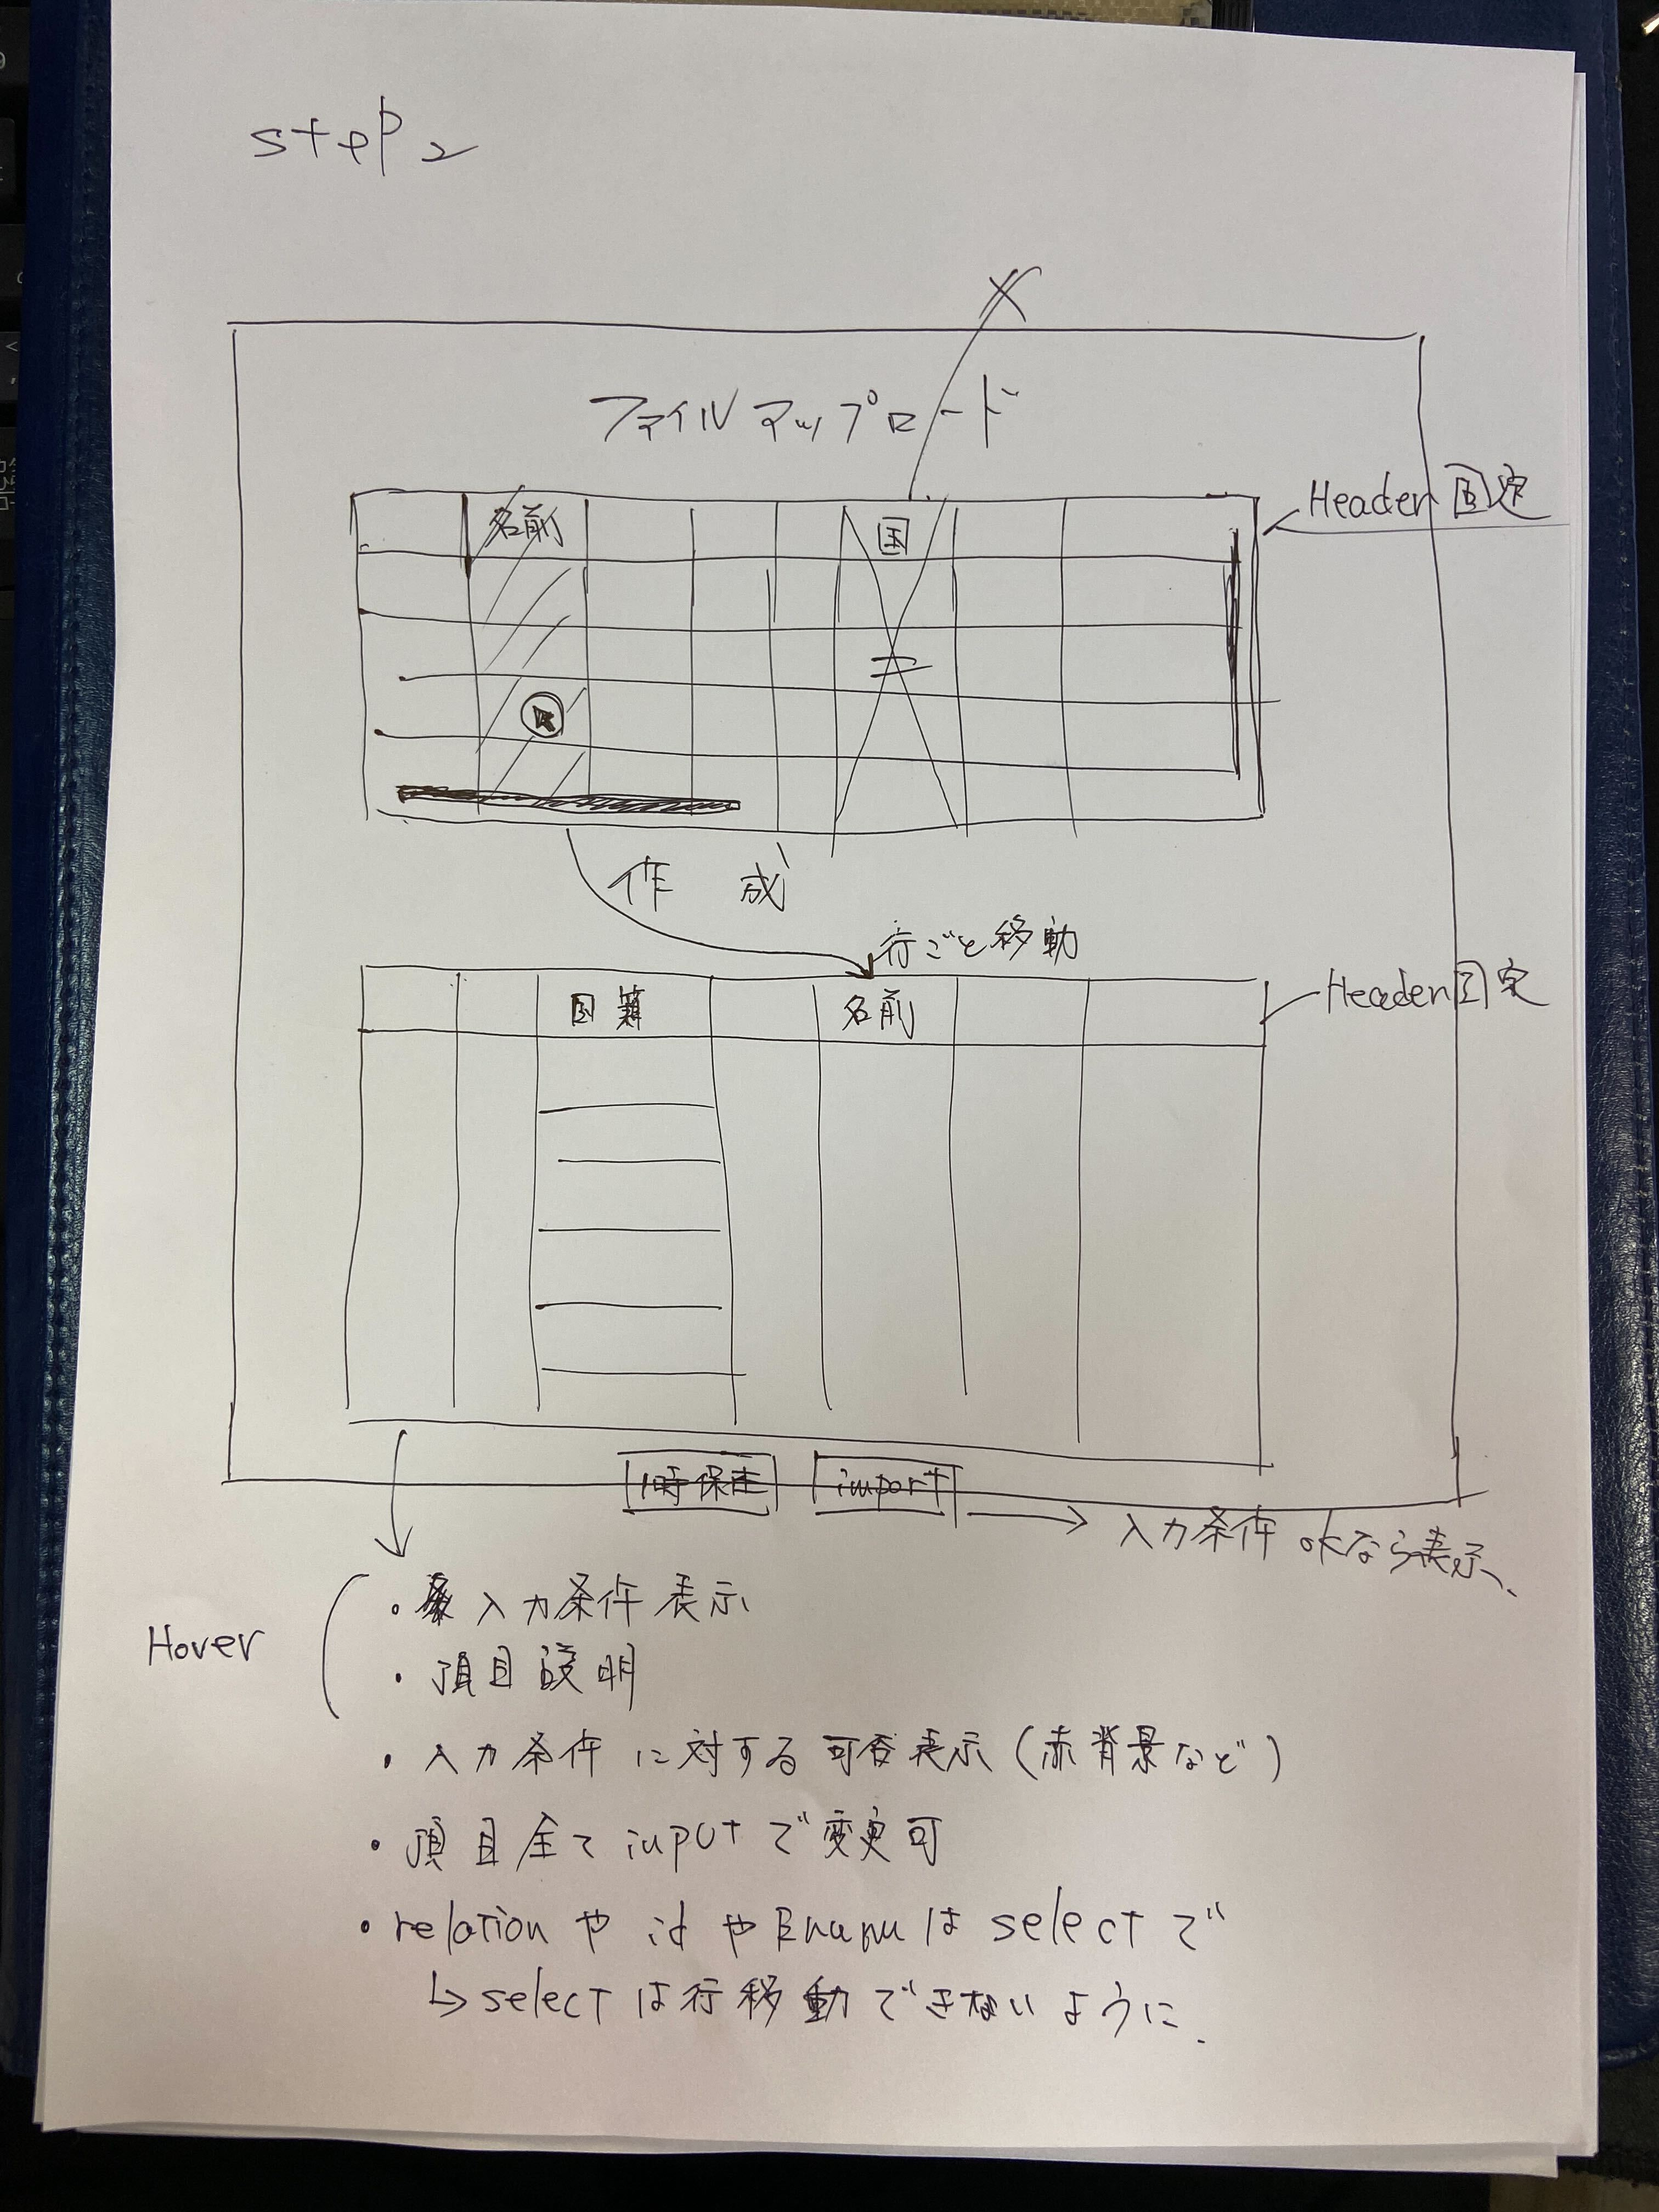 step2
ファイルアップロード
Header 固定
名前 国
作成
行ごと移動
Header 固定
国籍 名前
1時保存 import
入力条件 okなら表示、
Hover
・入力条件表示
・項目説明
・入力条件に対する可否表示(赤背景など)
・項目全てinputで変更可
・relationやidやEnumはselectで
↳selectは行移動できないように.